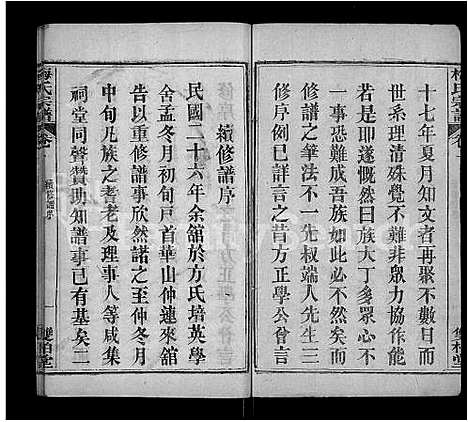 十七年夏月知文者再聚不數
月世清殊覺不難非眾力曷
至是即遂慨然曰族大丁多眾心不
一事恐難成吾族如此必不然矣而
修譜之筆法不一先叔端人先生三
修序例已詳言之方正學公曾言
續修譜序
民國二十六年余舘於方氏培英學
舍孟冬月初旬戸首華山仲連來舘
告以重修譜事欣然諾之至仲冬月
中旬凡族之耆老及理事人等咸集
祠堂同聲贊助知譜事已有基矣二
梅氏宗譜
卷一
續修譜序
一